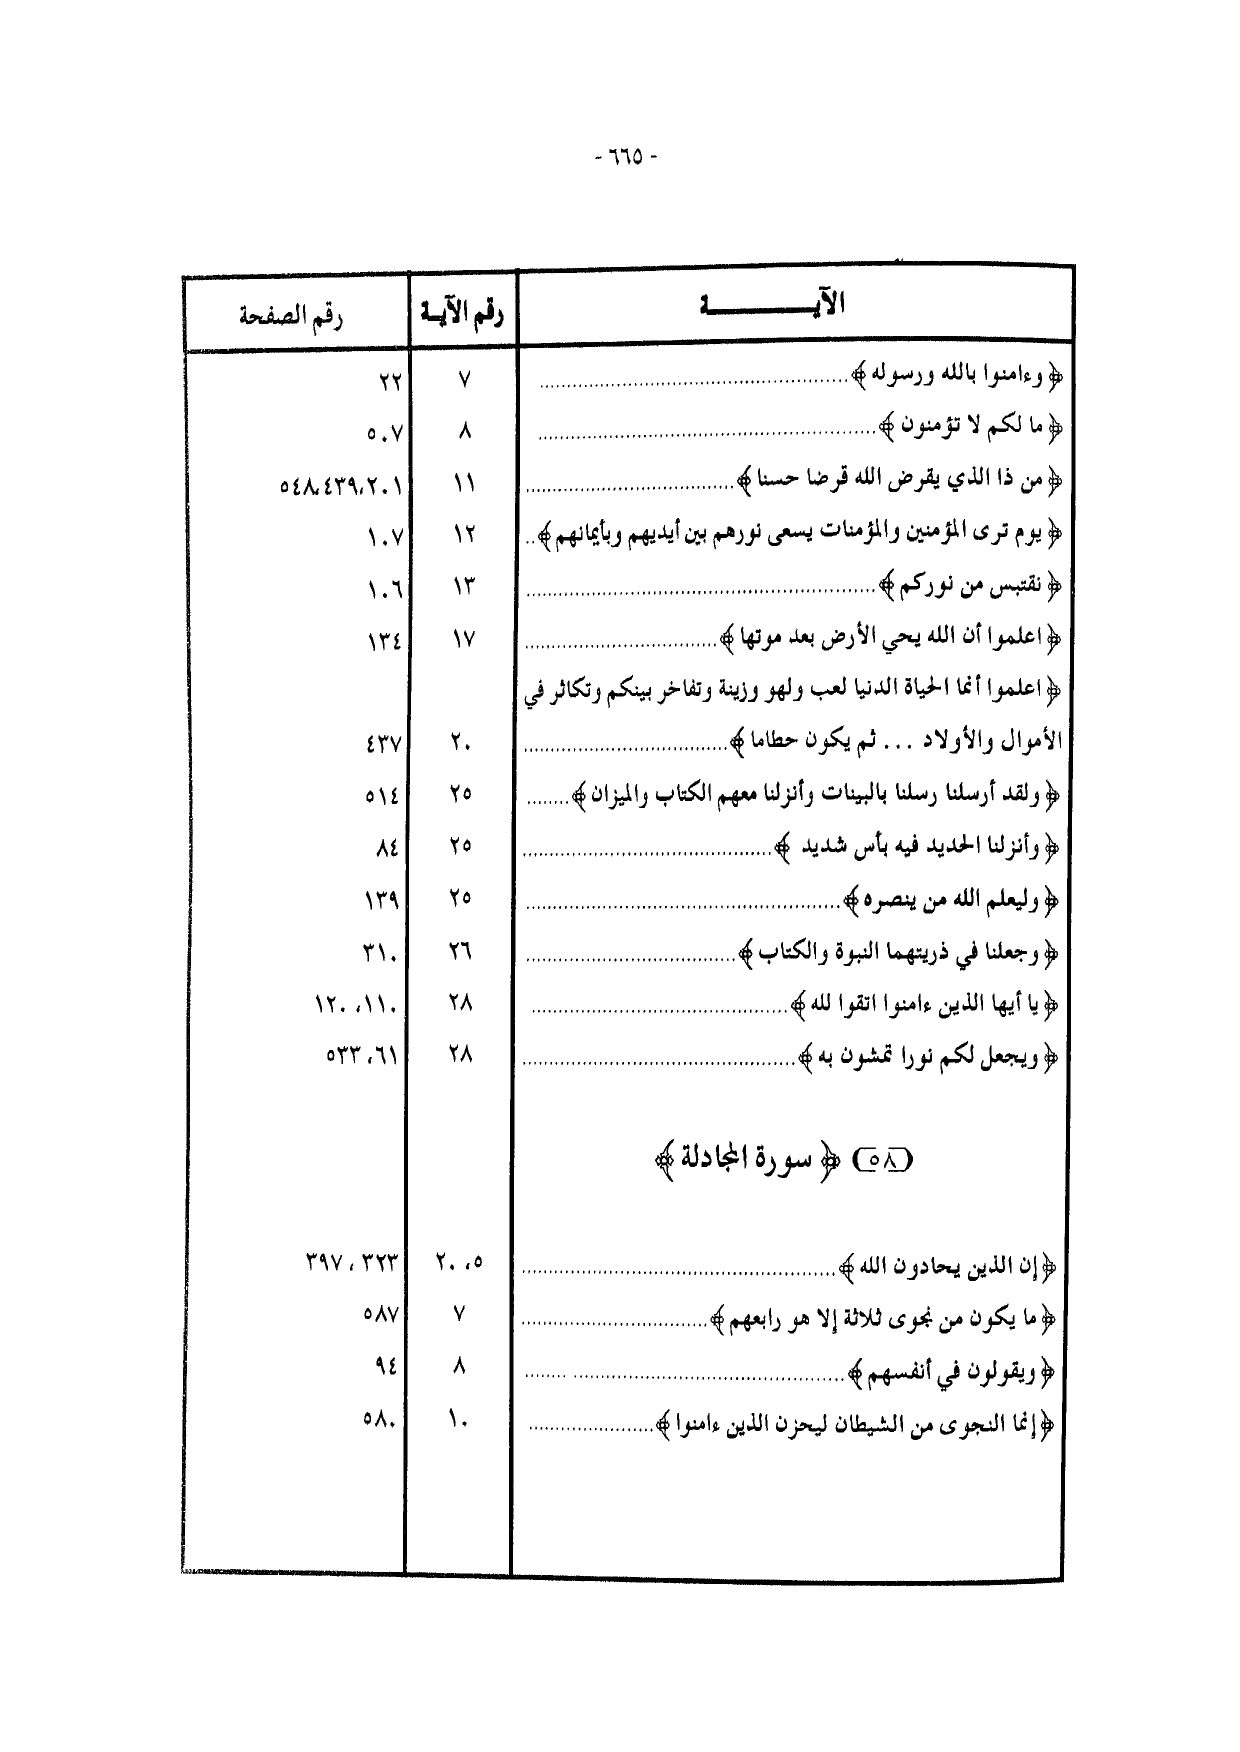 - ٦٦٥ -
الآيــــــــــة رقم الآيـة رقم الصفحة
﴿ وءامنوا بالله ورسوله ﴾ ................ ٧ ٢٢
﴿ ما لكم لا تؤمنون ﴾ ................ ٨ ٥٠٧
﴿ من ذا الذي يقرض الله قرضا حسنا ﴾ ................ ١١ ٥٤٨،٤٣٩،٢٠١
﴿ يوم ترى المؤمنين والمؤمنات يسعى نورهم بين أيديهم وبأيمانهم ﴾ .. ١٢ ١٠٧
﴿ نقتبس من نوركم ﴾ ................ ١٣ ١٠٦
﴿ اعلموا أن الله يحي الأرض بعد موتها ﴾ ................ ١٧ ١٣٤
﴿ اعلموا أنما الحياة الدنيا لعب ولهو وزينة وتفاخر بينكم وتكاثر في
الأموال والأولاد ... ثم يكون حطاما ﴾ ................ ٢٠ ٤٣٧
﴿ ولقد أرسلنا رسلنا بالبينات وأنزلنا معهم الكتاب والميزان ﴾ ........ ٢٥ ٥١٤
﴿ وأنزلنا الحديد فيه بأس شديد ﴾ ................ ٢٥ ٨٤
﴿ وليعلم الله من ينصره ﴾ ................ ٢٥ ١٣٩
﴿ وجعلنا في ذريتهما النبوة والكتاب ﴾ ................ ٢٦ ٣١٠
﴿ يا أيها الذين ءامنوا اتقوا لله ﴾ ................ ٢٨ ١٢٠،١١٠
﴿ ويجعل لكم نورا تمشون به ﴾ ................ ٢٨ ٥٣٣،٦١
(٥٨) ﴿ سورة المجادلة ﴾
﴿ إن الذين يحادون الله ﴾ ................ ٢٠،٥ ٣٩٧،٣٢٣
﴿ ما يكون من نجوى ثلاثة إلا هو رابعهم ﴾ ................ ٧ ٥٨٧
﴿ ويقولون في أنفسهم ﴾ ................ ٨ ٩٤
﴿ إنما النجوى من الشيطان ليحزن الذين ءامنوا ﴾ ................ ١٠ ٥٨٠